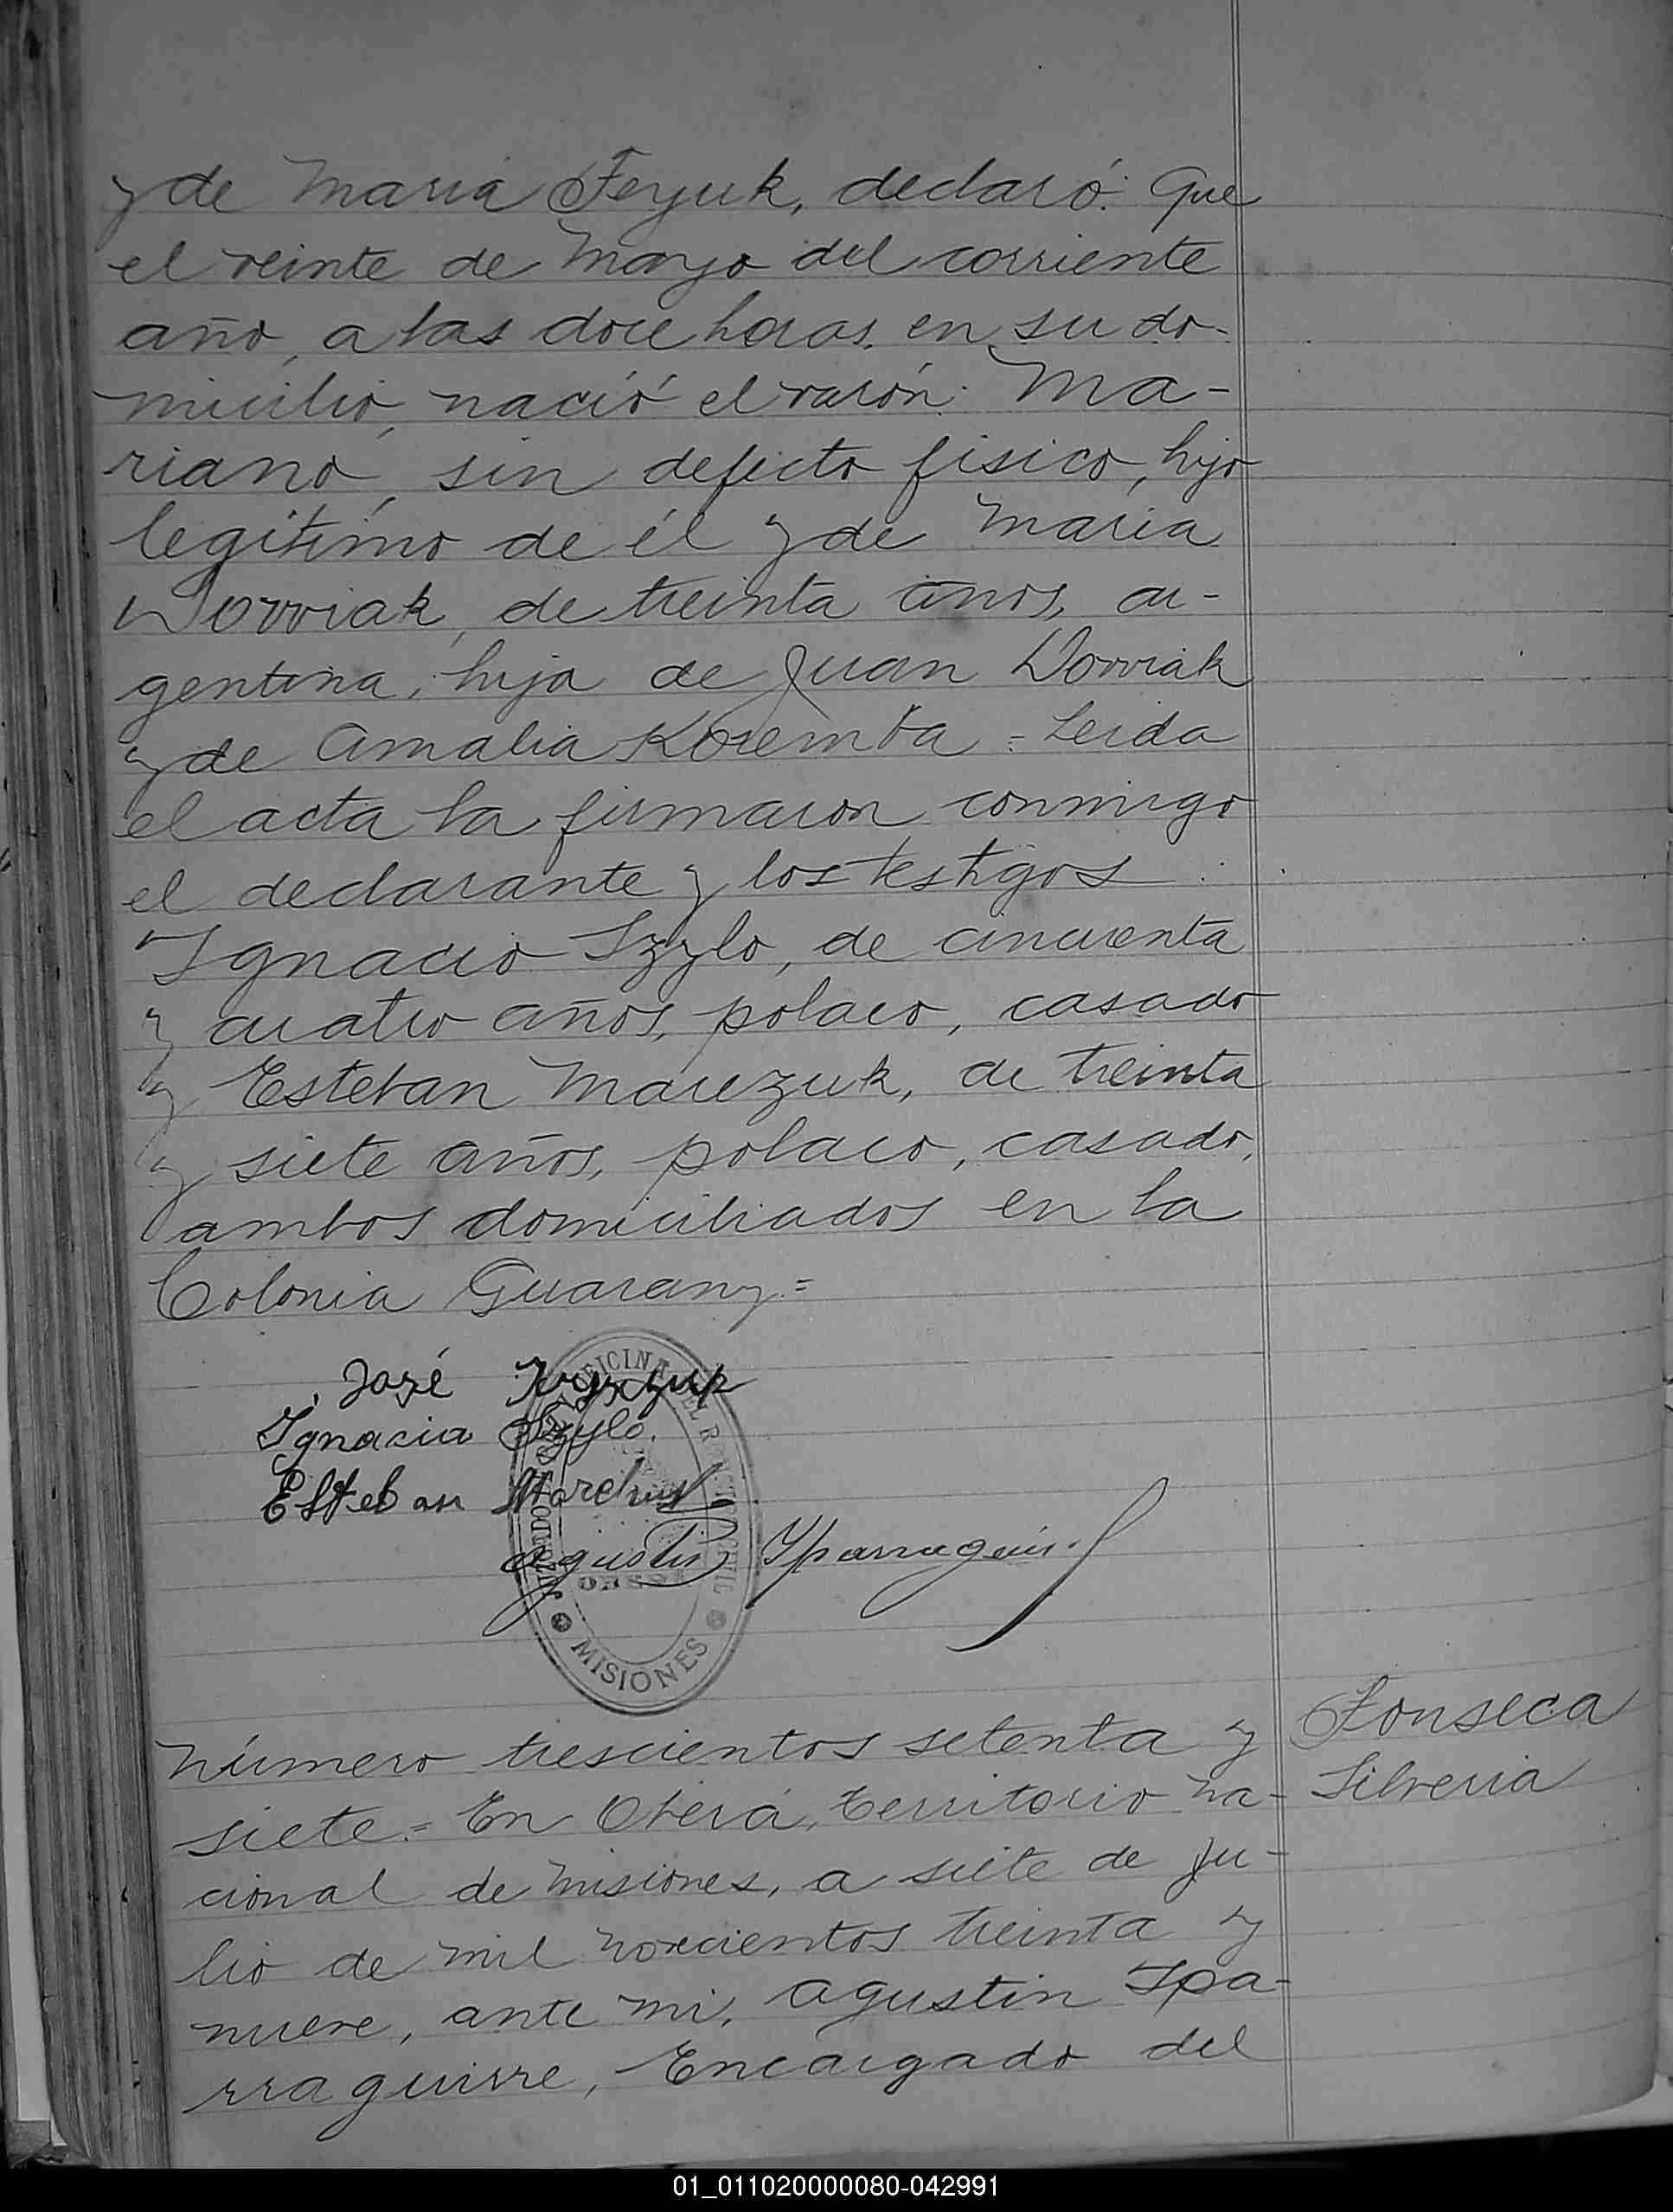 y de María Feyuk, declaró: Que
el veinte de Mayo del corriente
año, a las doce horas, en su do-
micilio, nació el varón: Ma-
riano, sin defecto físico, hijo
legítimo de él y de María
Dowiak, de treinta años, ar-
gentina, hija de Juan Dowiak
y de Amalia Koremba = Leida
el acta la firmaron conmigo
el declarante y los testigos:
Ignacio Szylo, de cincuenta
y cuatro años, polaco, casado
y Esteban Marczuk, de treinta
y siete años, polaco, casado,
ambos domiciliados en la
Colonia Guarany=
José
Ignacia Szylo.
Esteban
Agustin Yparraguirre
OFICINA DEL REGISTRO CIVIL
MISIONES
Número trescientos setenta y
siete.= En Oberá, Territorio Na-
cional de Misiones, a siete de Ju-
lio de mil novecientos treinta y
nueve, ante mi, Agustin Ypa-
rraguirre, Encargado del
Fonseca
Silveria
01_011020000080-042991